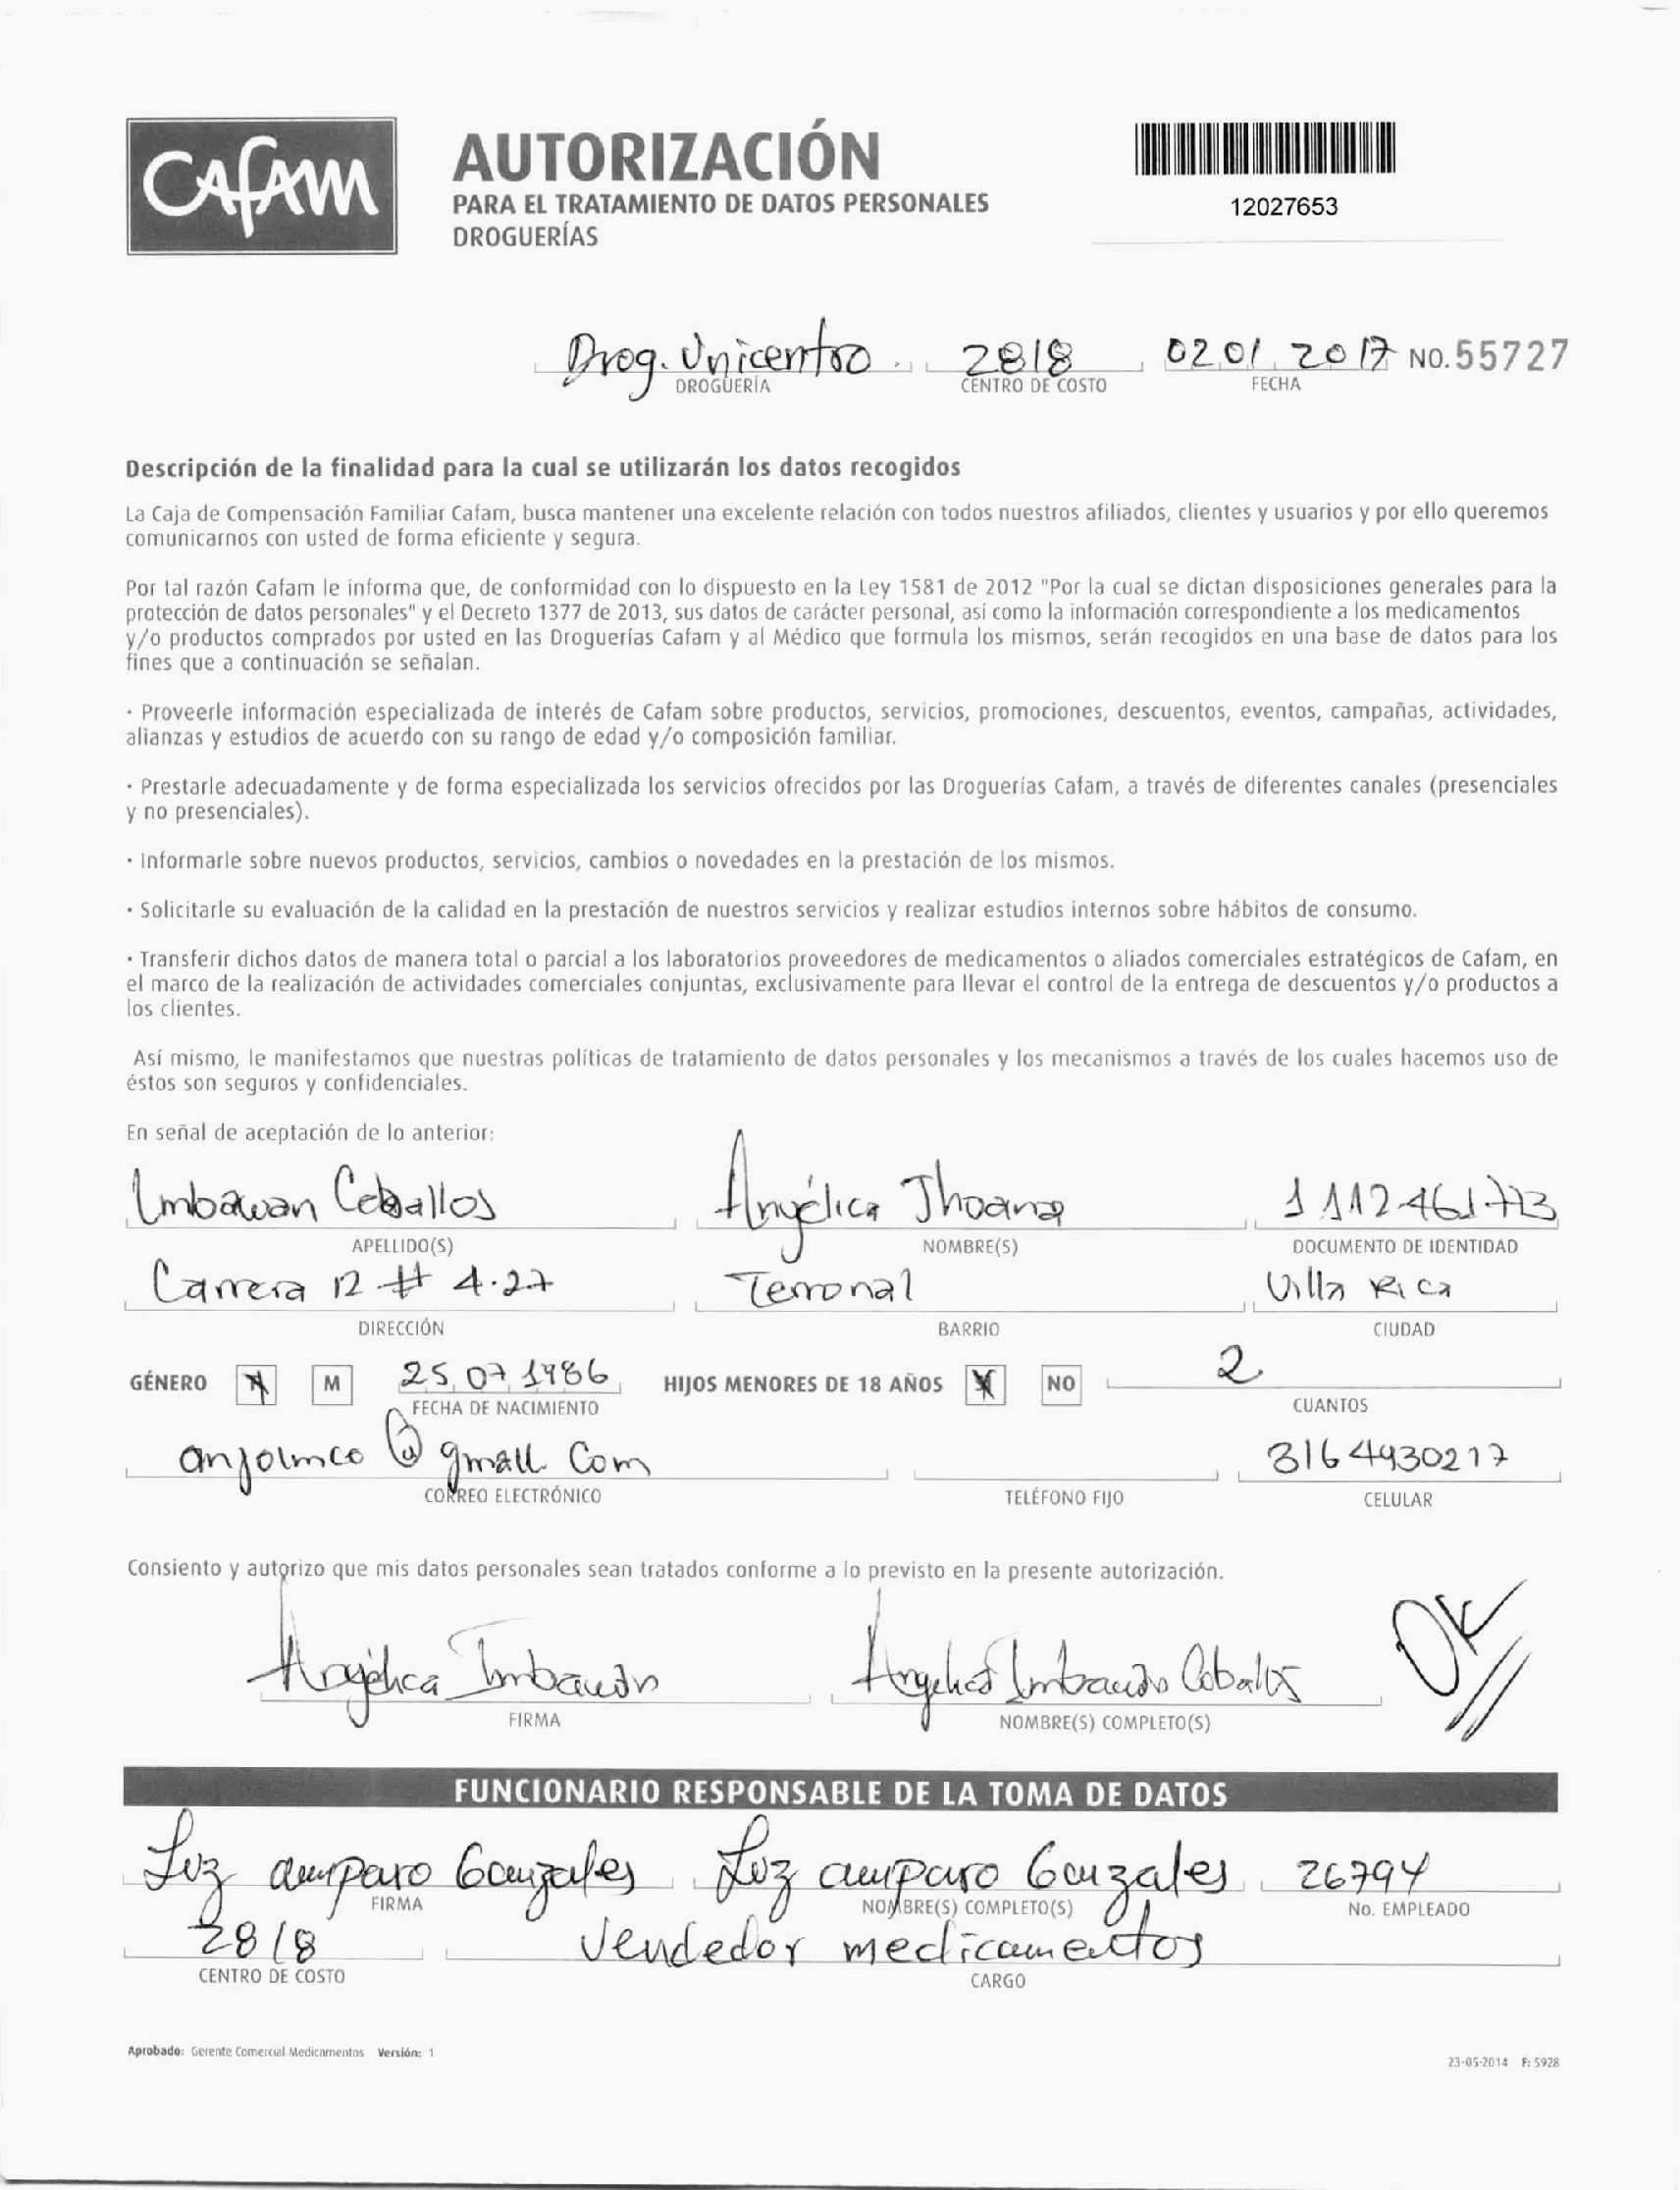 CAFAM
AUTORIZACIÓN
PARA EL TRATAMIENTO DE DATOS PERSONALES
DROGUERÍAS
12027653
Drog. Unicentro 2818 02 01 2017 NO. 55727
DROGUERÍA CENTRO DE COSTO FECHA
Descripción de la finalidad para la cual se utilizarán los datos recogidos
La Caja de Compensación Familiar Cafam, busca mantener una excelente relación con todos nuestros afiliados, clientes y usuarios y por ello queremos
comunicarnos con usted de forma eficiente y segura.
Por tal razón Cafam le informa que, de conformidad con lo dispuesto en la Ley 1581 de 2012 "Por la cual se dictan disposiciones generales para la
protección de datos personales" y el Decreto 1377 de 2013, sus datos de carácter personal, así como la información correspondiente a los medicamentos
y/o productos comprados por usted en las Droguerías Cafam y al Médico que formula los mismos, serán recogidos en una base de datos para los
fines que a continuación se señalan.
· Proveerle información especializada de interés de Cafam sobre productos, servicios, promociones, descuentos, eventos, campañas, actividades,
alianzas y estudios de acuerdo con su rango de edad y/o composición familiar.
· Prestarle adecuadamente y de forma especializada los servicios ofrecidos por las Droguerías Cafam, a través de diferentes canales (presenciales
y no presenciales).
· Informarle sobre nuevos productos, servicios, cambios o novedades en la prestación de los mismos.
· Solicitarle su evaluación de la calidad en la prestación de nuestros servicios y realizar estudios internos sobre hábitos de consumo.
· Transferir dichos datos de manera total o parcial a los laboratorios proveedores de medicamentos o aliados comerciales estratégicos de Cafam, en
el marco de la realización de actividades comerciales conjuntas, exclusivamente para llevar el control de la entrega de descuentos y/o productos a
los clientes.
Así mismo, le manifestamos que nuestras políticas de tratamiento de datos personales y los mecanismos a través de los cuales hacemos uso de
éstos son seguros y confidenciales.
En señal de aceptación de lo anterior:
Ceballos Angélica Jhoana 1112461713
APELLIDO(S) NOMBRE(S) DOCUMENTO DE IDENTIDAD
Carrera 12 # 4.27 Terronal Villa Rica
DIRECCIÓN BARRIO CIUDAD
GÉNERO M 25 07 1986 HIJOS MENORES DE 18 AÑOS NO 2
FECHA DE NACIMIENTO CUANTOS
@ gmail. Com 3164930217
CORREO ELECTRÓNICO TELÉFONO FIJO CELULAR
Consiento y autorizo que mis datos personales sean tratados conforme a lo previsto en la presente autorización.
Angélica OK
FIRMA NOMBRE(S) COMPLETO(S)
FUNCIONARIO RESPONSABLE DE LA TOMA DE DATOS
Luz amparo Gonzales Luz amparo Gonzales 26794
FIRMA NOMBRE(S) COMPLETO(S) No. EMPLEADO
2818 Vendedor medicamentos
CENTRO DE COSTO CARGO
Aprobado: Gerente Comercial Medicamentos Versión: 1
23-05-2014 F: 5928